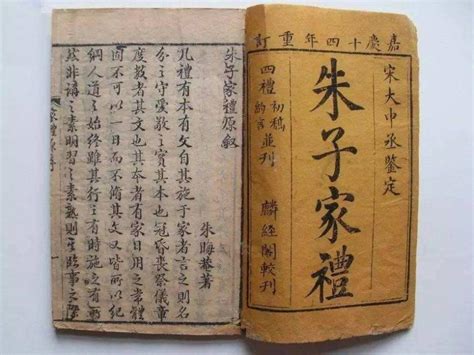 嘉慶十四年重訂
宋大中丞鑒定
朱子家禮
四禮初稿約言並刊 麟經閣較刊
朱子家禮原敘
朱晦菴著
凡禮有本有文自其施于家者言之則名
分之守愛敬之實其本也冠昏喪祭儀章
度數者其文也其本者有家日用之常體
固不可以一日而不脩其文又皆所以紀
綱人道之始終雖其行之有時施之有所
然非講之素明習之素熟則其臨事之